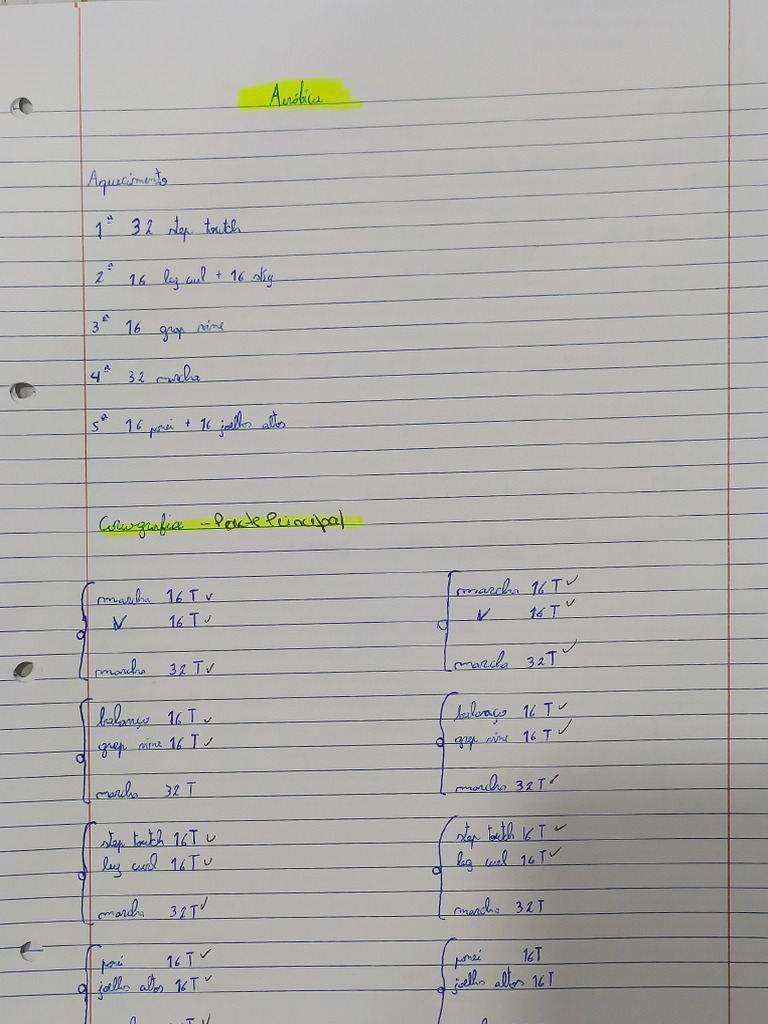 Aeróbica
Aquecimento
1ª 32 step touch
2ª 16 leg curl + 16 step
3ª 16 grap vine
4ª 32 marcha
5ª 16 ponei + 16 joelhos altos
Coreografia - Parte Principal
marcha 16 T ✓
V 16 T ✓
marcha 32 T ✓
balanço 16 T ✓
grap vine 16 T ✓
marcha 32 T
step touch 16T ✓
leg curl 16T ✓
marcha 32T ✓
ponei 16 T ✓
joelhos altos 16T ✓
marcha 16 T ✓
V 16 T ✓
marcha 32T ✓
balanço 16 T ✓
grap vine 16 T ✓
marcha 32T ✓
step touch 16 T ✓
leg curl 16T ✓
marcha 32T
ponei 16T
joelhos altos 16T